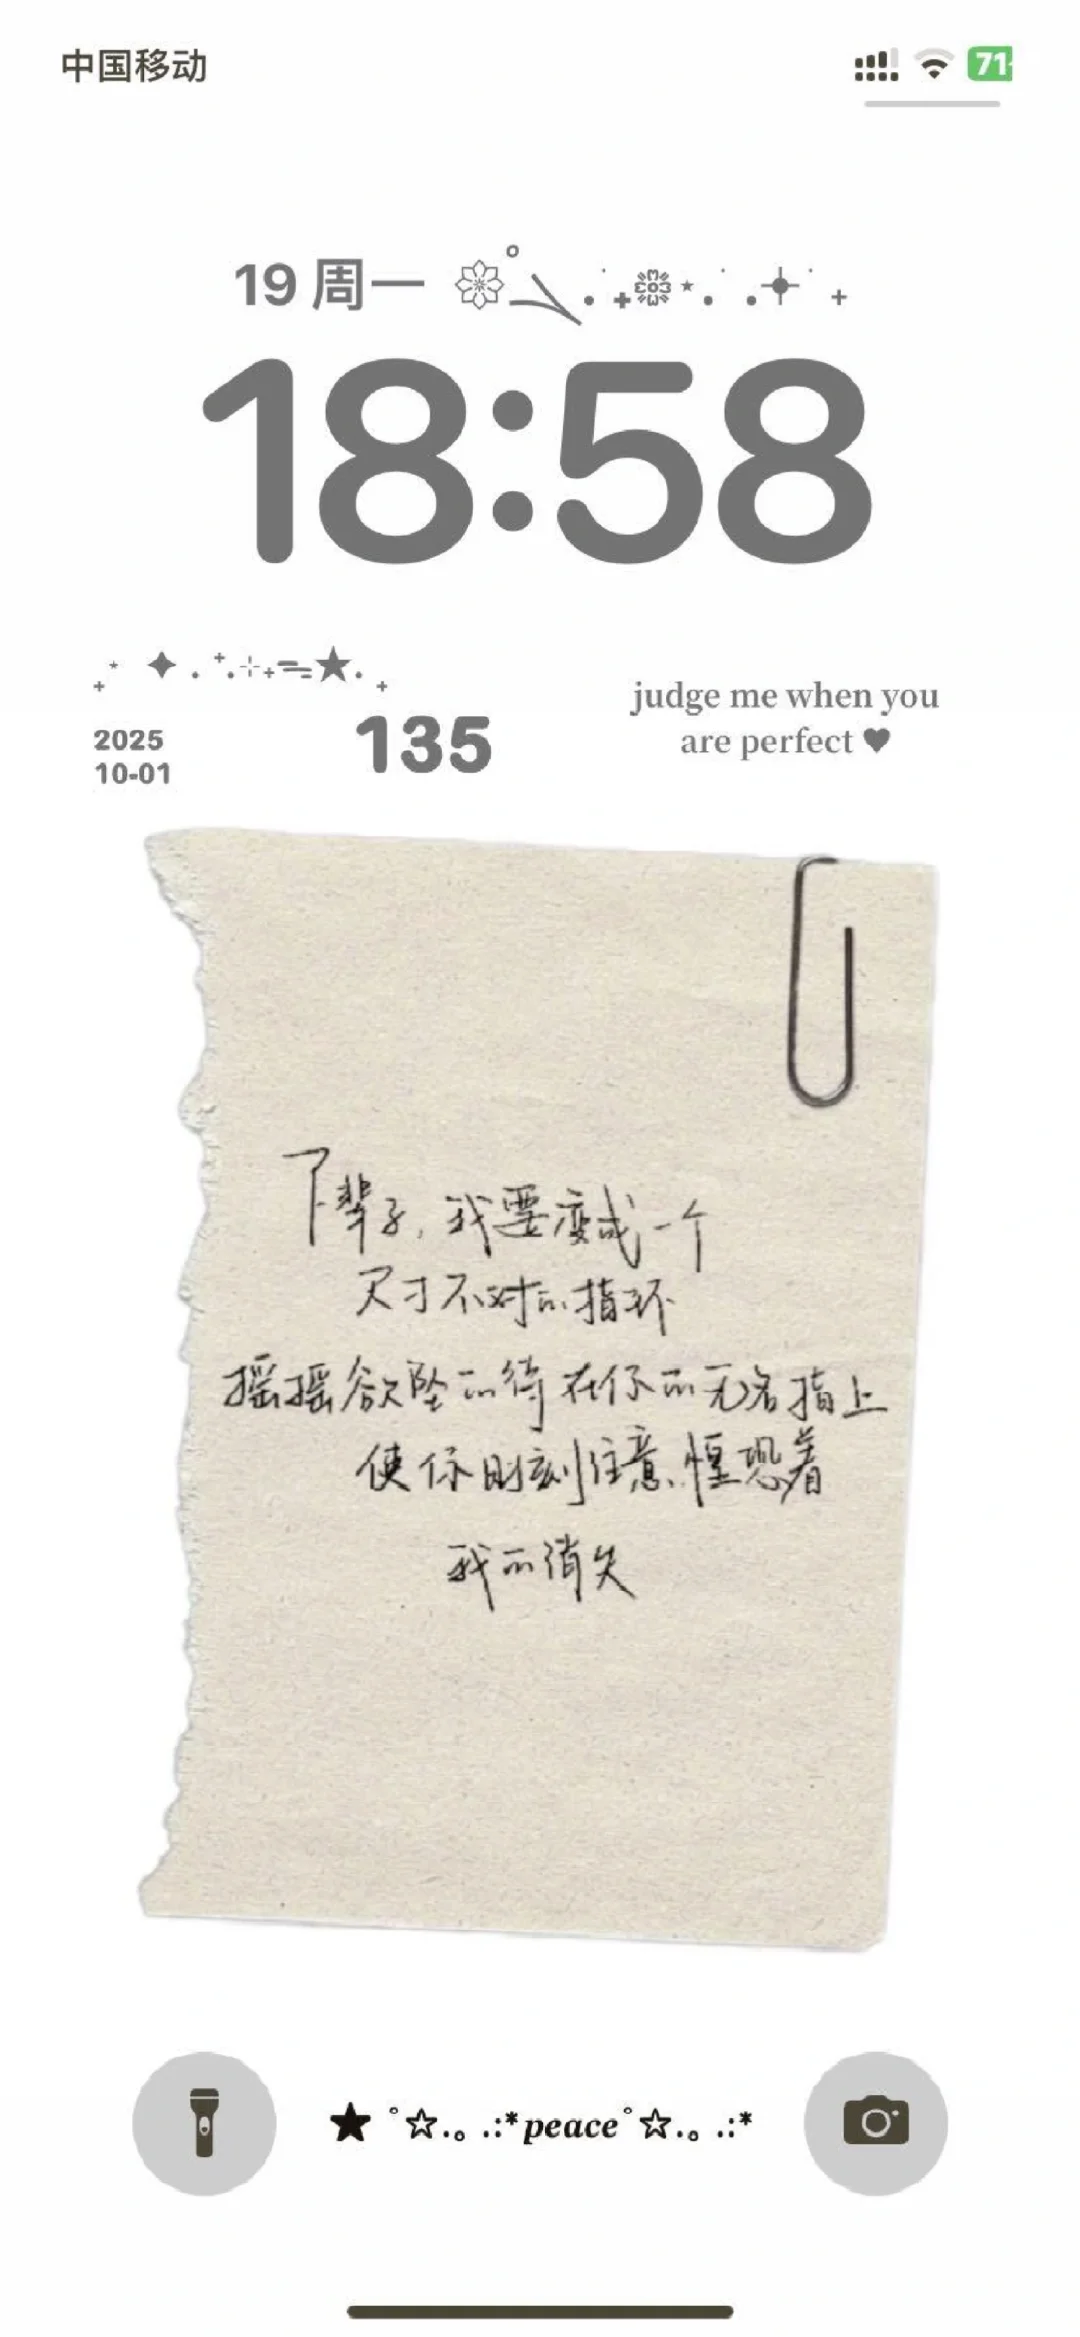 中国移动
71
19 周一
18:58
2025
10-01
135
judge me when you
are perfect ♥
下辈子,我要变成一个
尺寸不对的指环
摇摇欲坠的待在你的无名指上
使你时刻注意、惶恐着
我的消失
★ ˚☆.。.:*peace˚☆.。.:*